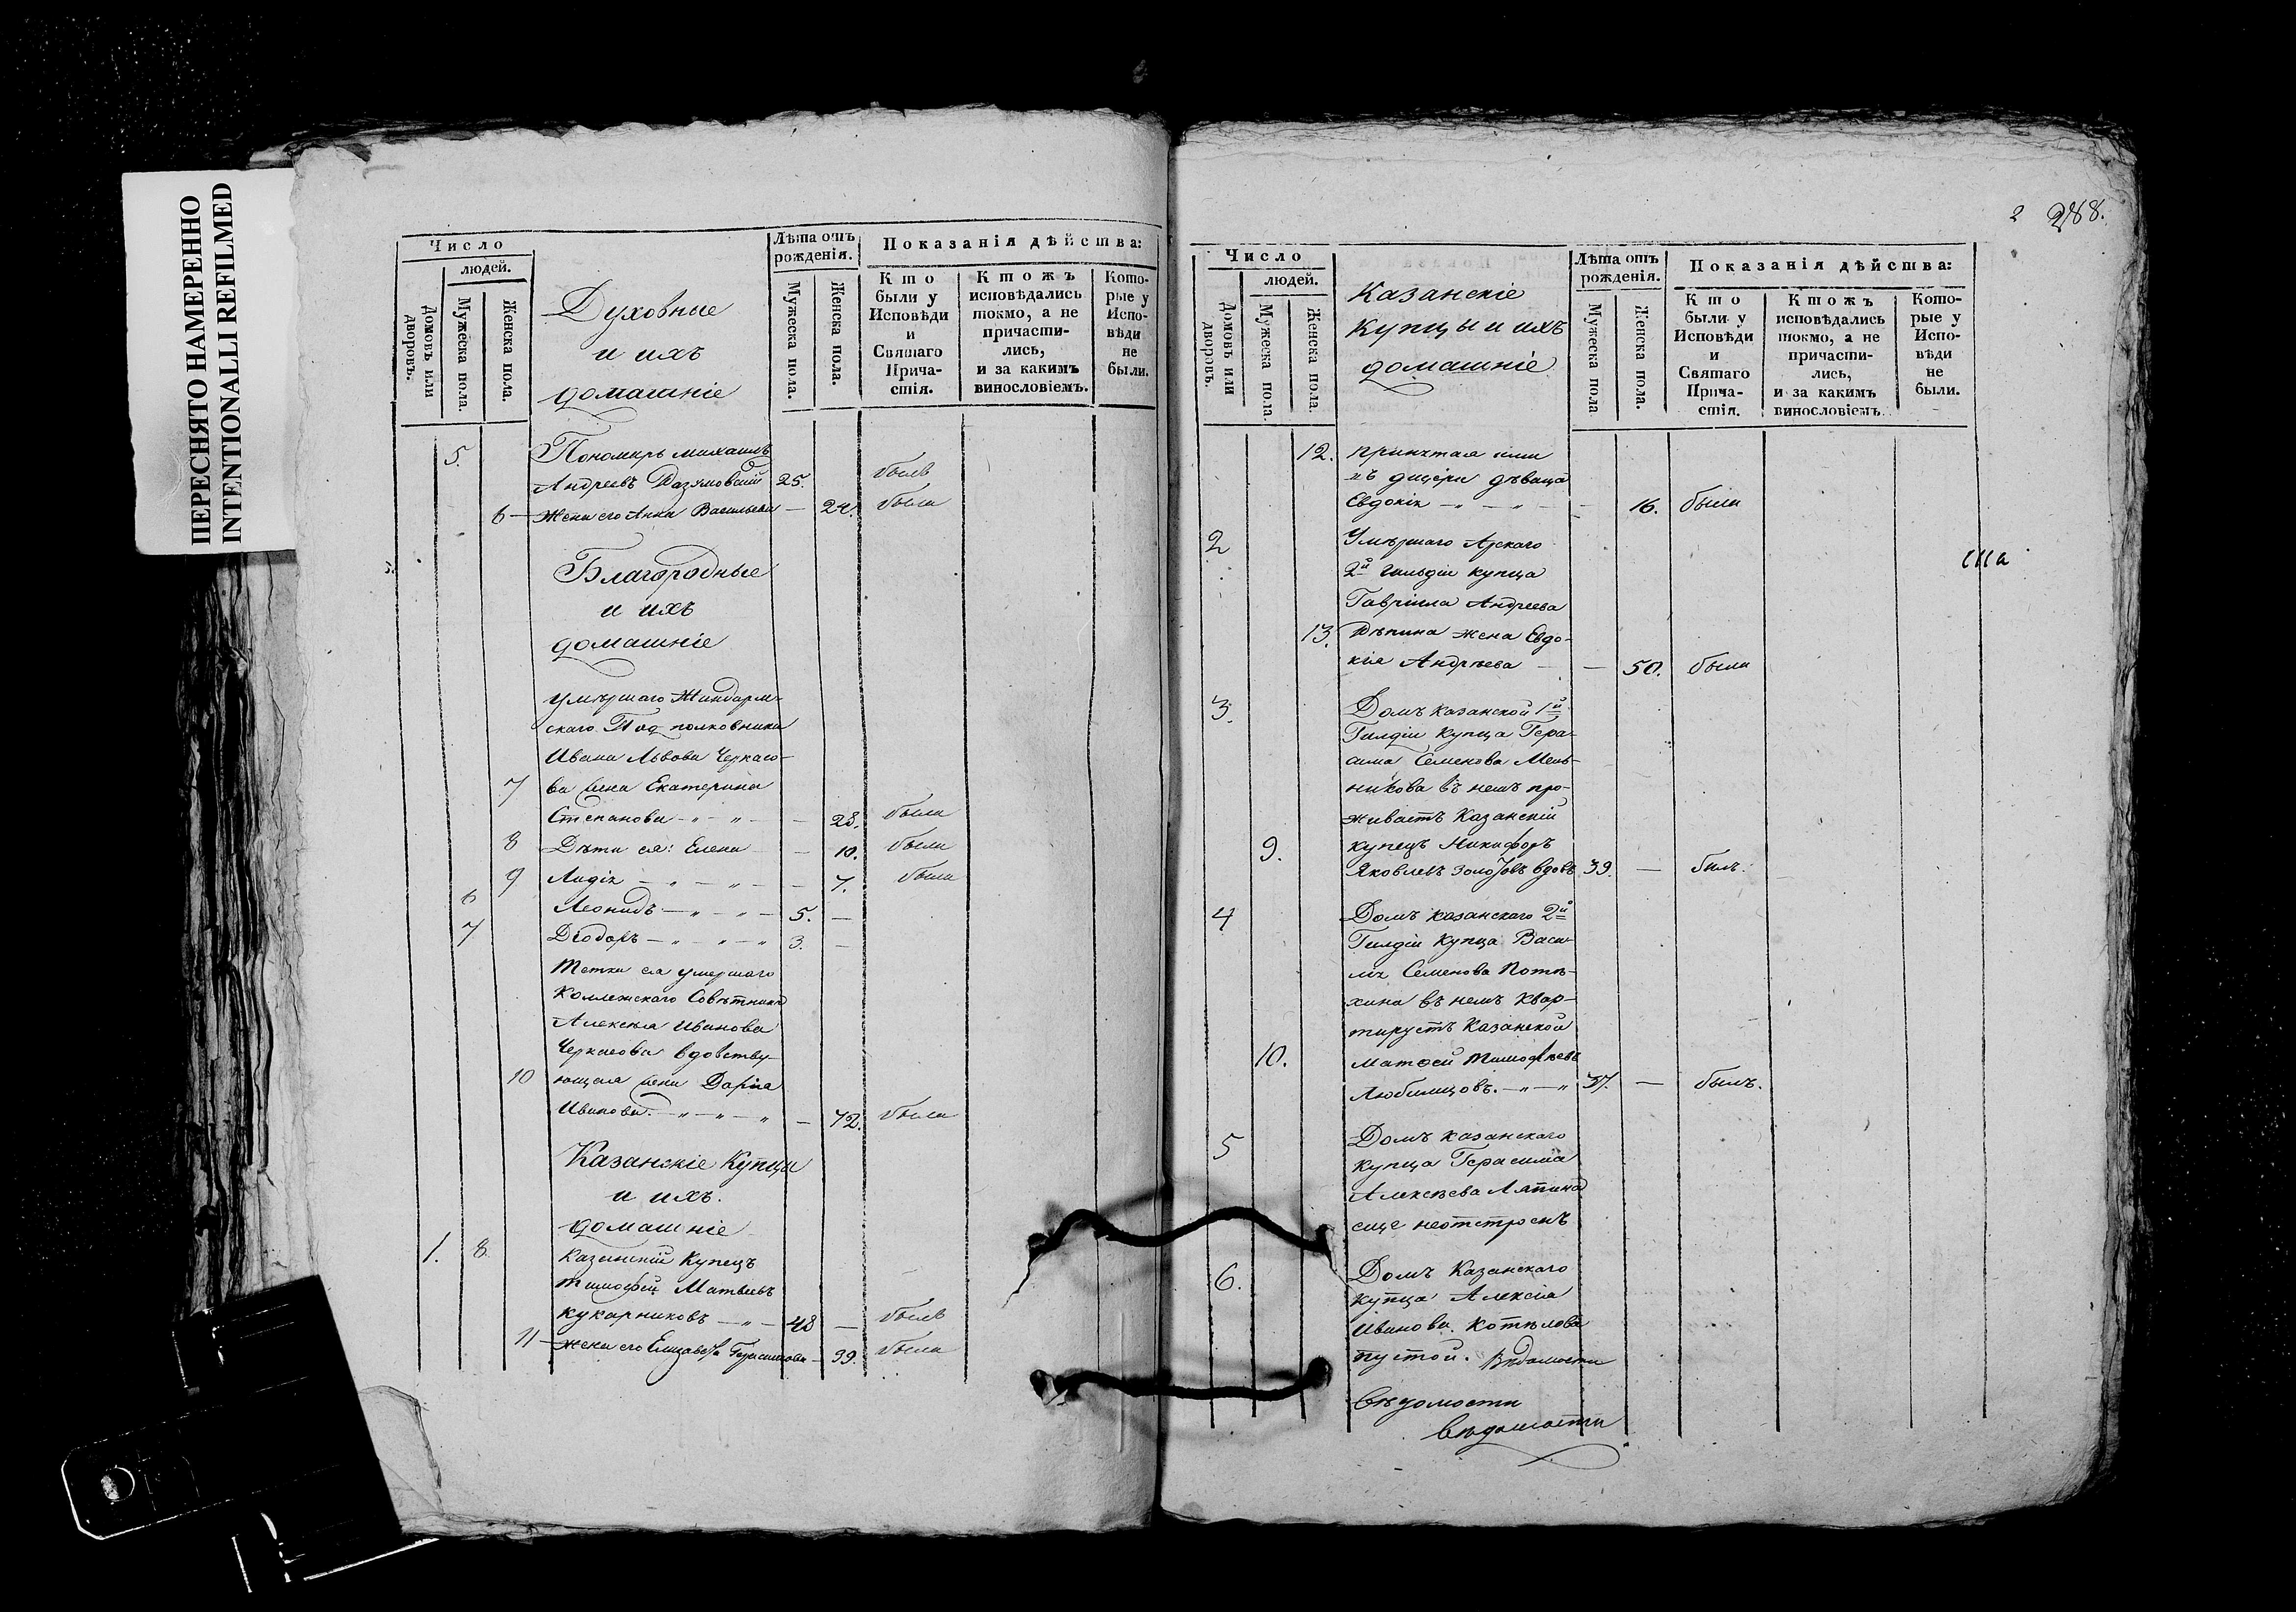 ПЕРЕСНЯТО НАМЕРЕННО
INTENTIONALLI REFILMED
Число
людей.
Домовъ или дворовъ.
Мужеска пола.
Женска пола.
Духовные
и ихъ
домашніе
Лѣта отъ рожденія.
Мужеска пола.
Женска пола.
Показанія дѣйства:
Кто были у Исповѣди и Святаго Причастія.
Ктожъ исповѣдались токмо, а не причастились, и за какимъ винословіемъ.
Которые у Исповѣди не были.
5. Пономарь Михаилъ
Андреевъ 25. былъ
6 — Жена его Анна Васильева — 24. была
Благородные
и ихъ
домашніе
Умершаго Жандарм-
скаго Подполковника
Ивана Львова Черкасо-
7 ва жена Екатерина
Степанова — 28. была
8 Дѣти ея: Елена — 10. была
9 Лидія — 7. была
6 Леонидъ — 5. —
7 Ѳеодоръ — 3. —
Тетка ея умершаго
Коллежскаго Совѣтника
Алексѣя Иванова
Черкасова вдовству-
10 ющая жена Дарія
Иванова — 72. была
Казанскіе Купцы
и ихъ.
домашніе
1. 8. Казанскій Купецъ
Тимофей Матвѣевъ
Кукарниковъ — 48 — былъ
11 — жена его Елизавета Герасимова — 39. была
2 288.
Число
людей.
Домовъ или дворовъ.
Мужеска пола.
Женска пола.
Казанскіе
Купцы и ихъ
домашніе
Лѣта отъ рожденія.
Мужеска пола
Женска пола.
Показанія дѣйства:
Кто были у Исповѣди и Святаго Причастія.
Ктожъ исповѣдались токмо, а не причастились, и за какимъ винословіемъ.
Которые у Исповѣди не были.
12. принятая ими
дщери дѣвица
Евдокія — 16. была
2 Умершаго Арскаго
2й Гильдіи купца
Гавріила Андреева
13. жена Евдо-
кія Андреева — 50. была
3. Домъ казанской 1й
Гилдіи Купца Гера-
сима Семенова Мель-
никова въ немъ про-
живаетъ Казанскій
9. купецъ Никифоръ
Яковлевъ Золотовъ вдовъ 39. — былъ.
4 Домъ казанскаго 2й
Гилдіи Купца Васи-
лія Семенова Потѣ-
хина въ немъ квар-
тируетъ Казанской
10. Матѳей Тимофѣевъ
Любимцовъ. — 37. — былъ.
5 Домъ казанскаго
купца Герасима
Алексѣева Ляпина
еще неотстроенъ
6. Домъ Казанскаго
купца Алексія
Иванова Котѣлова
пустой. Вѣдомости
Вѣдомости
вѣдомости